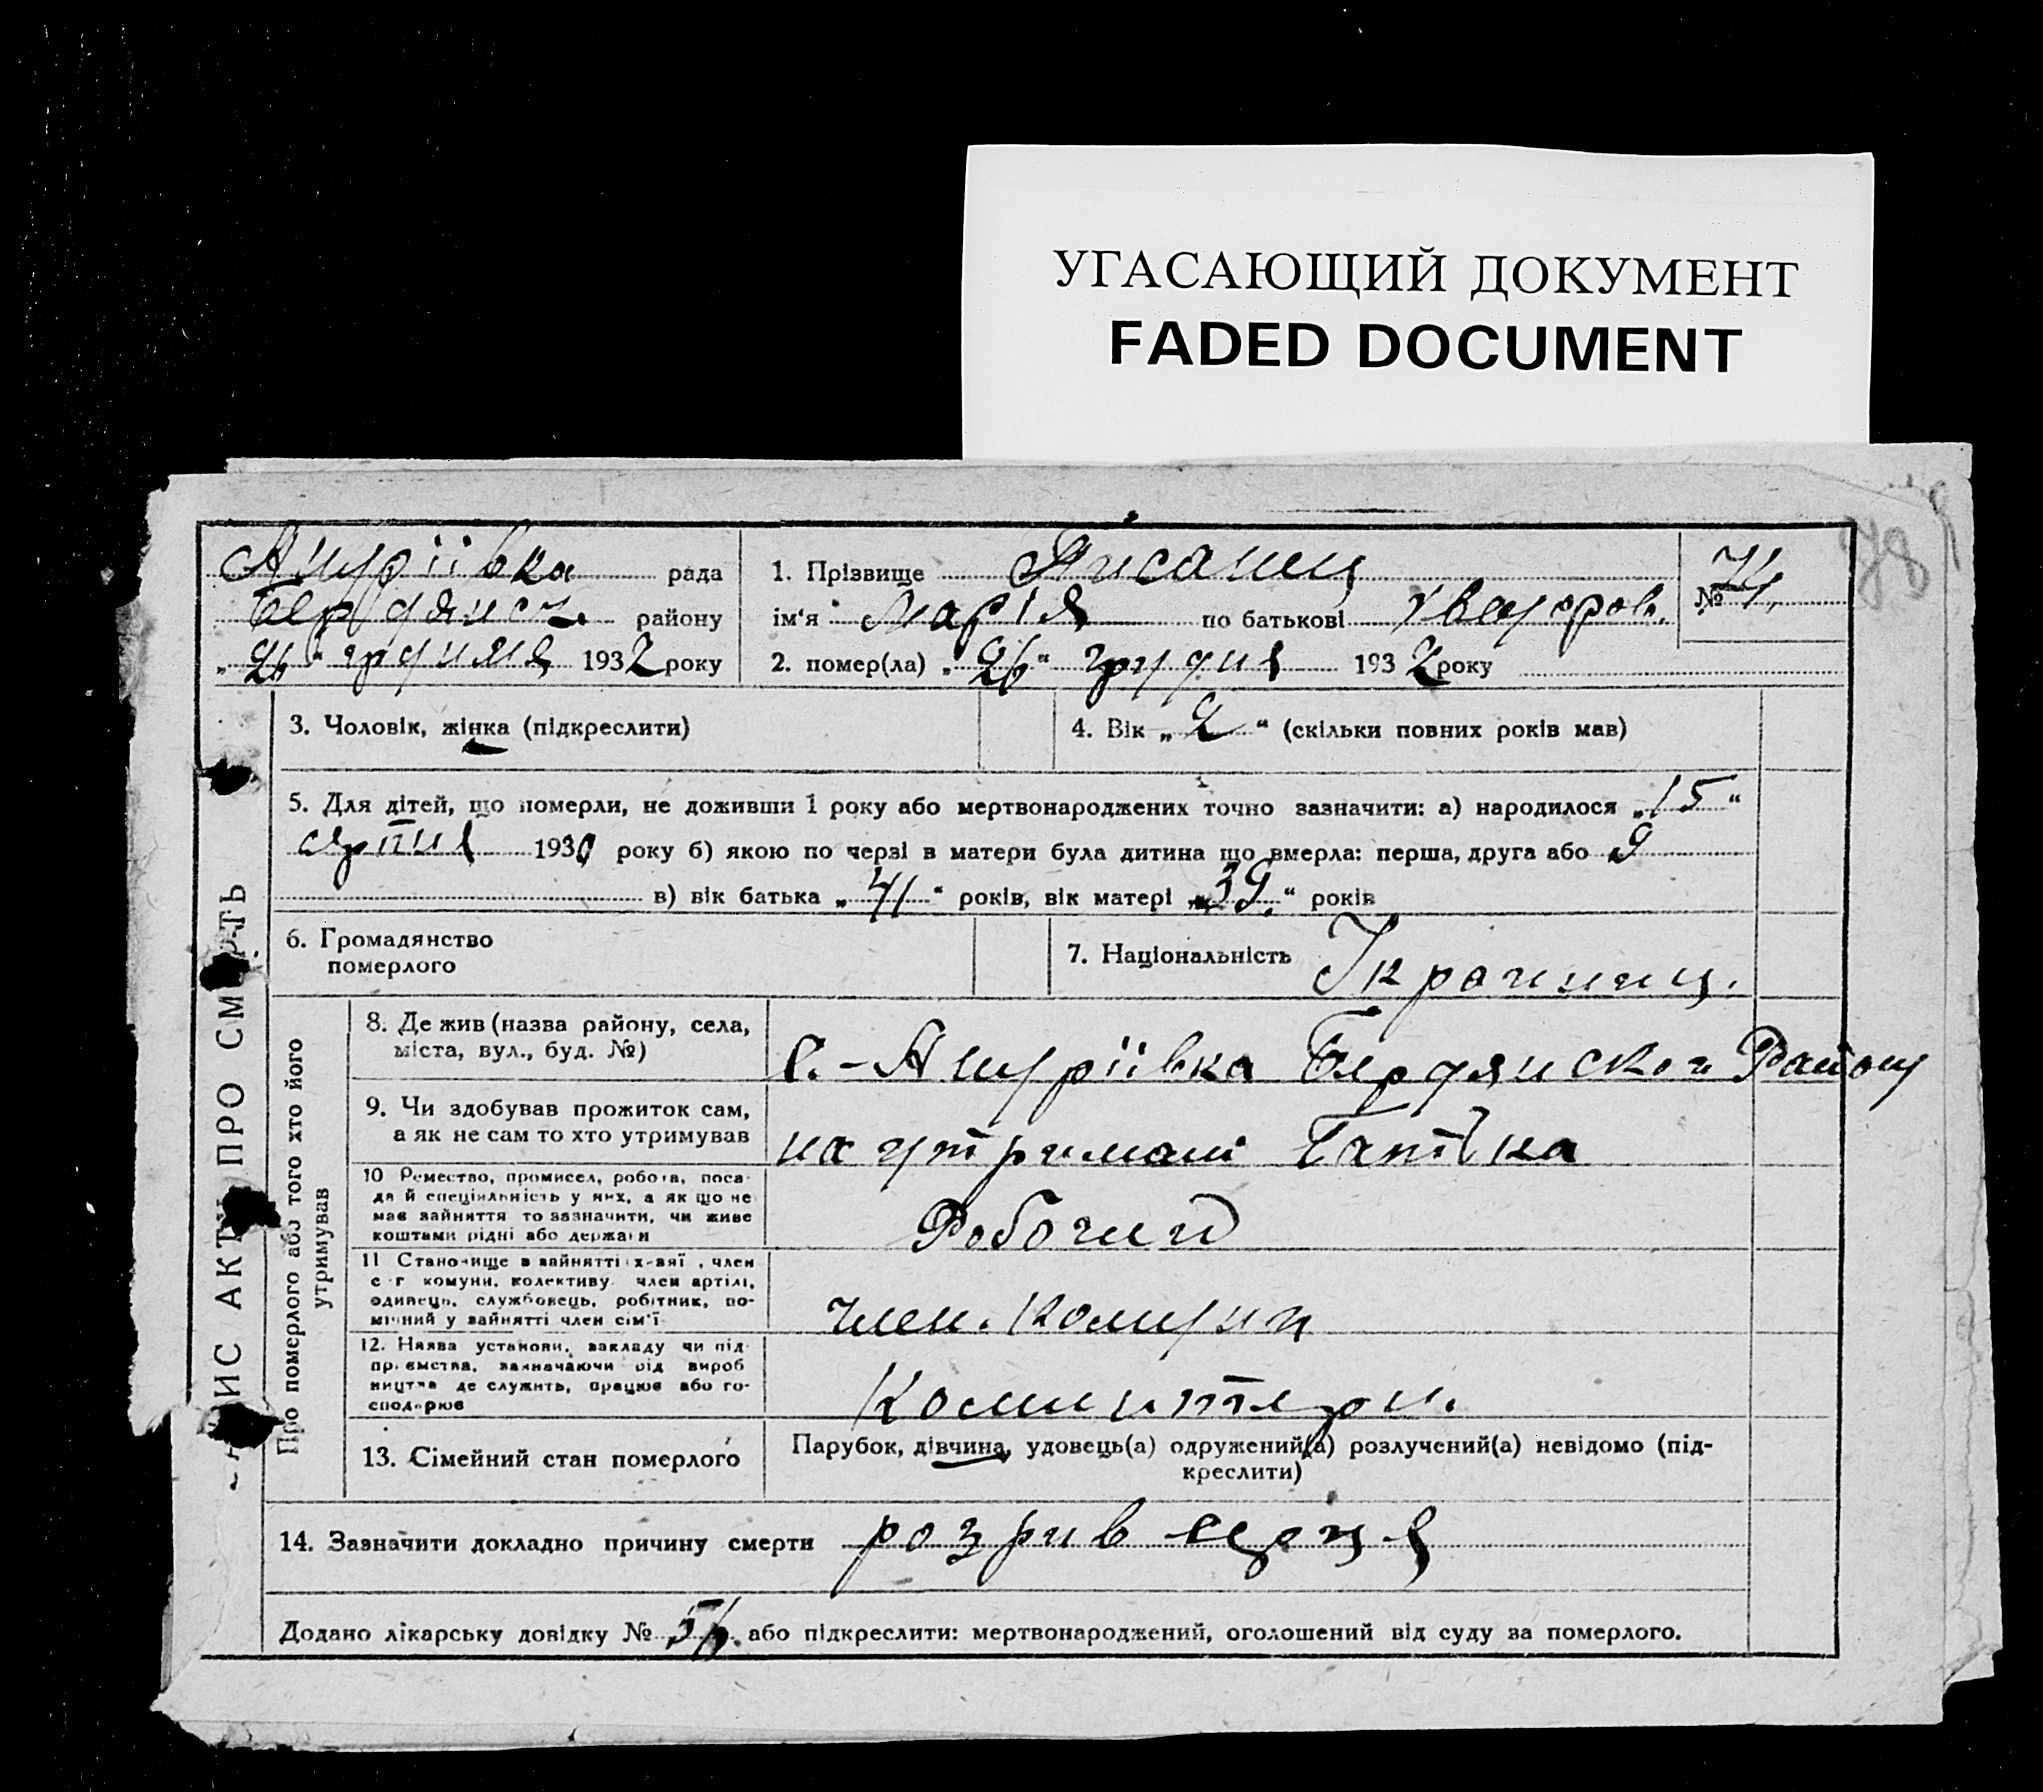 УГАСАЮЩИЙ ДОКУМЕНТ
FADED DOCUMENT
78
рада
району
„26“ грудня 1932 року
1. Прізвище Писанец
ім'я Марія по батькові
2. помер(ла) „26“ грудня 1932 року
№ 74
ЗАПИС АКТУ ПРО СМЕРТЬ
3. Чоловік, жінка (підкреслити)
4. Вік „2“ (скільки повних років мав)
5. Для дітей, що померли, не доживши 1 року або мертвонароджених точно зазначити: а) народилося „15“
серпня 1930 року б) якою по черзі в матери була дитина що вмерла: перша, друга або 9
в) вік батька „41“ років, вік матері „39“ років
6. Громадянство
померлого
7. Національність Україниц.
Про померлого або того хто його
утримував
8. Де жив (назва району, села,
міста, вул., буд. №)
с.-Андріївка Бердянского Району
9. Чи здобував прожиток сам,
а як не сам то хто утримував
на утримані Батька
10 Ремество, промисел, робота, поса-
да й спеціяльність у них, а як що не
має зайняття то зазначити, чи живе
коштами рідні або держави
Робочий
11 Становище в зайнятті
член
с-г комуни, колективу член артілі,
одинець, службовець, робітник, по-
мічний у зайнятті член сім'ї
член. комуни
12. Назва установи, закладу чи під-
приємства, зазначаючи від вироб
ництва де служить, працює або го-
сподарює
Комінтерн.
13. Сімейний стан померлого
Парубок, дівчина, удовець(а) одружений(а) розлучений(а) невідомо (під-
креслити)
14. Зазначити докладно причину смерти розрив серця
Додано лікарську довідку № або підкреслити: мертвонароджений, оголошений від суду за померлого.